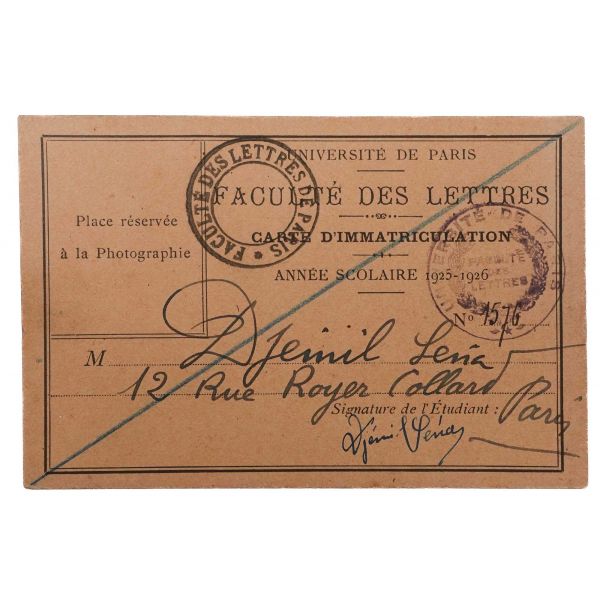 UNIVERSITÉ DE PARIS
FACULTÉ DES LETTRES
CARTE D'IMMATRICULATION
ANNÉE SCOLAIRE 1925-1926
Place réservée
à la Photographie
FACULTÉ DES LETTRES DE PARIS
UNIVERSITÉ DE PARIS
FACULTÉ
DES
LETTRES
No 1576
M Djémil Séna
12 Rue Royer Collard
Paris
Signature de l'Étudiant :
Djémil Séna